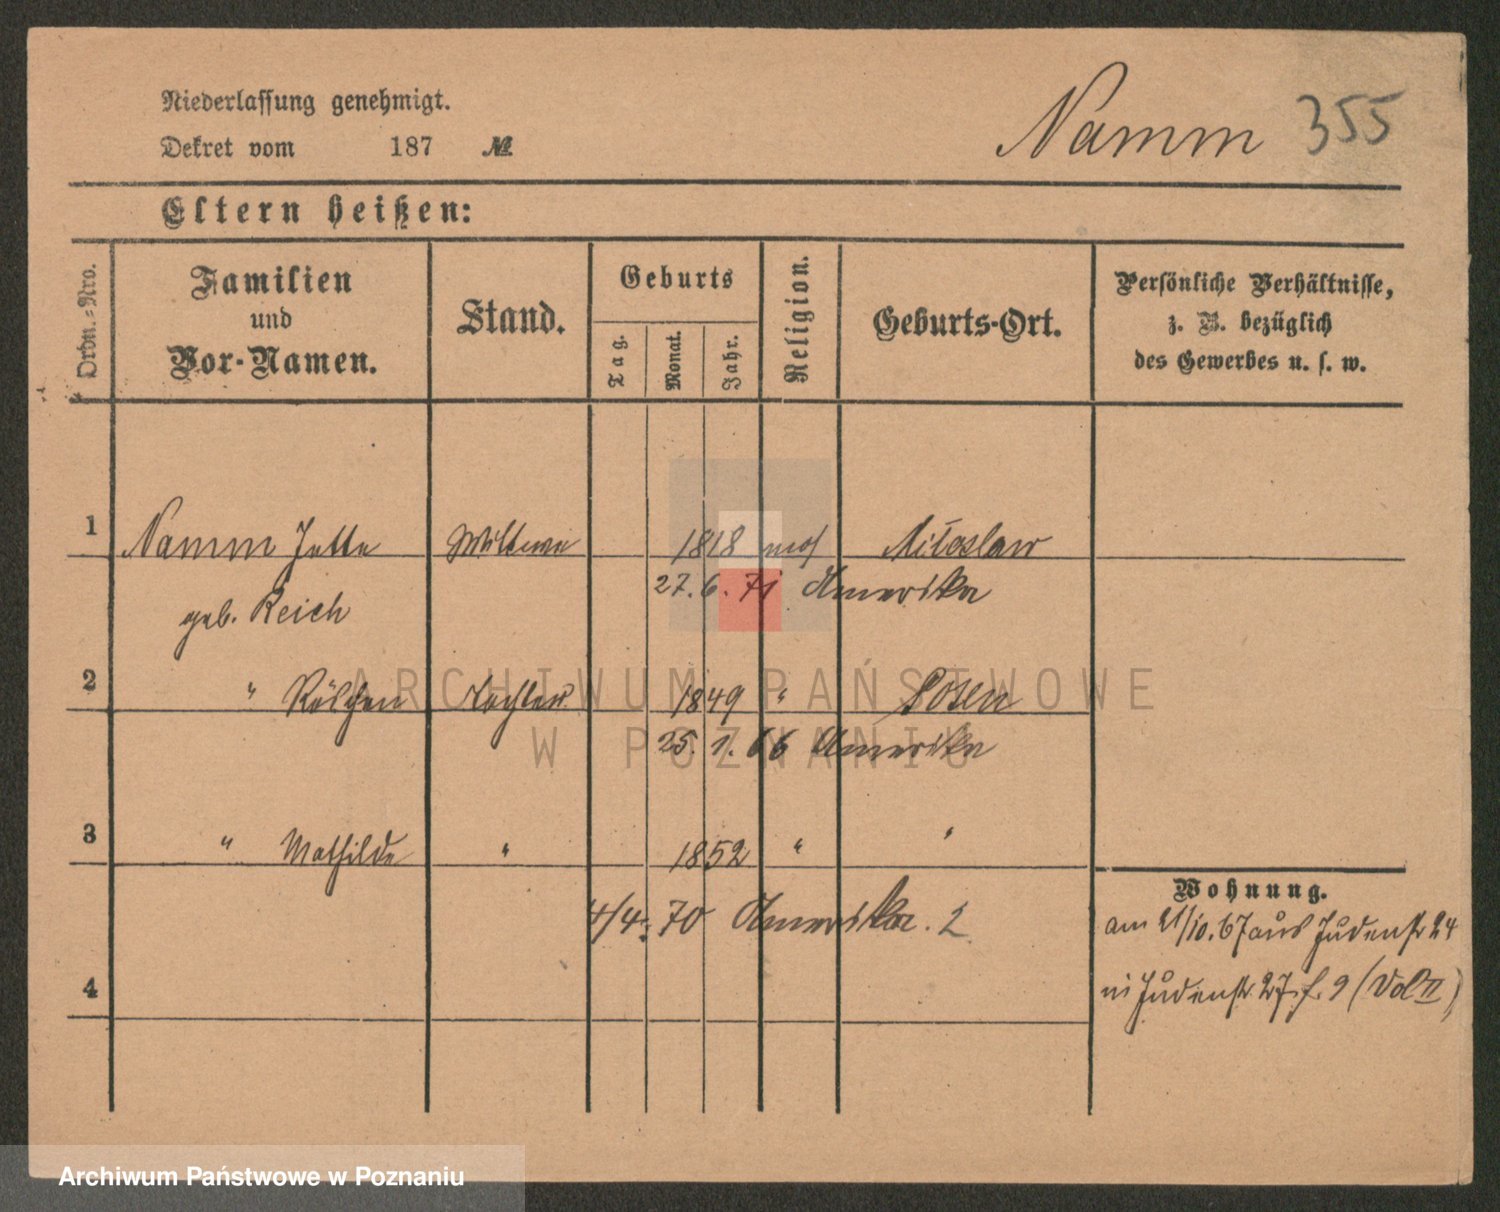 Niederlassung genehmigt.
Dekret vom 187 №
Namm 355
Eltern heißen:
Ordn.-Nro.
Familien
und
Vor-Namen.
Stand.
Geburts
Tag.
Monat.
Jahr.
Religion.
Geburts-Ort.
Persönliche Verhältnisse,
z. B. bezüglich
des Gewerbes u. s. w.
1 Namm Jette Wittwe 1818 mos Miloslaw
27. 6. 71 Amerika
geb. Reich
2 " Röschen Tochter 1849 " Posen
25. 1. 66 Amerika
3 " Mathilde " 1852 " "
Wohnung.
4/4. 70 Amerika. 2
am 21/10. 67 aus Judenstr 24
in Judenstr 27. f. 9 (Vol II)
4
ARCHIWUM PAŃSTWOWE
W POZNANIU
Archiwum Państwowe w Poznaniu